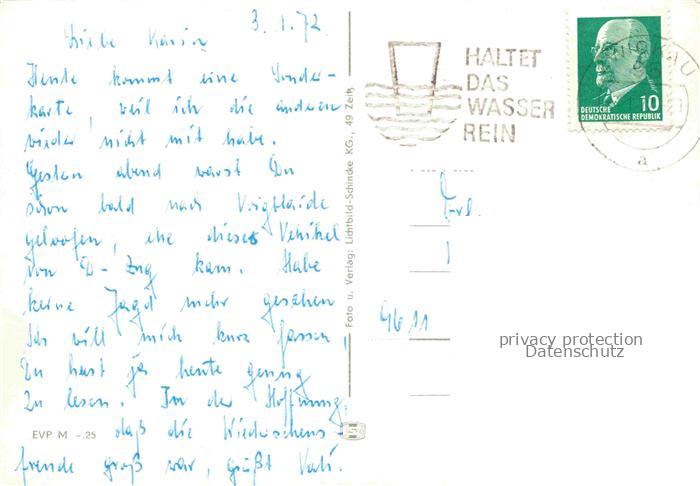 3.1.72
Liebe Karin
Heute kommt eine Sonder-
karte, weil ich die anderen
wieder nicht mit habe.
Gestern abend warst Du
schon bald nach Voigtlaide
gelaufen, ehe dieses Vehikel
von D-Zug kam. Habe
keine Jagd mehr gesehen
Ich will mich kurz fassen!
Du hast ja heute genug
zu lesen. In der Hoffnung,
daß die Wiedersehens-
freude groß war, grüßt Vati.
EVP M -.25
Foto u. Verlag: Lichtbild-Schincke KG., 49 Zeitz
HALTET
DAS
WASSER
REIN
10
DEUTSCHE
DEMOKRATISCHE REPUBLIK
a
Frl.
9611
privacy protection
Datenschutz